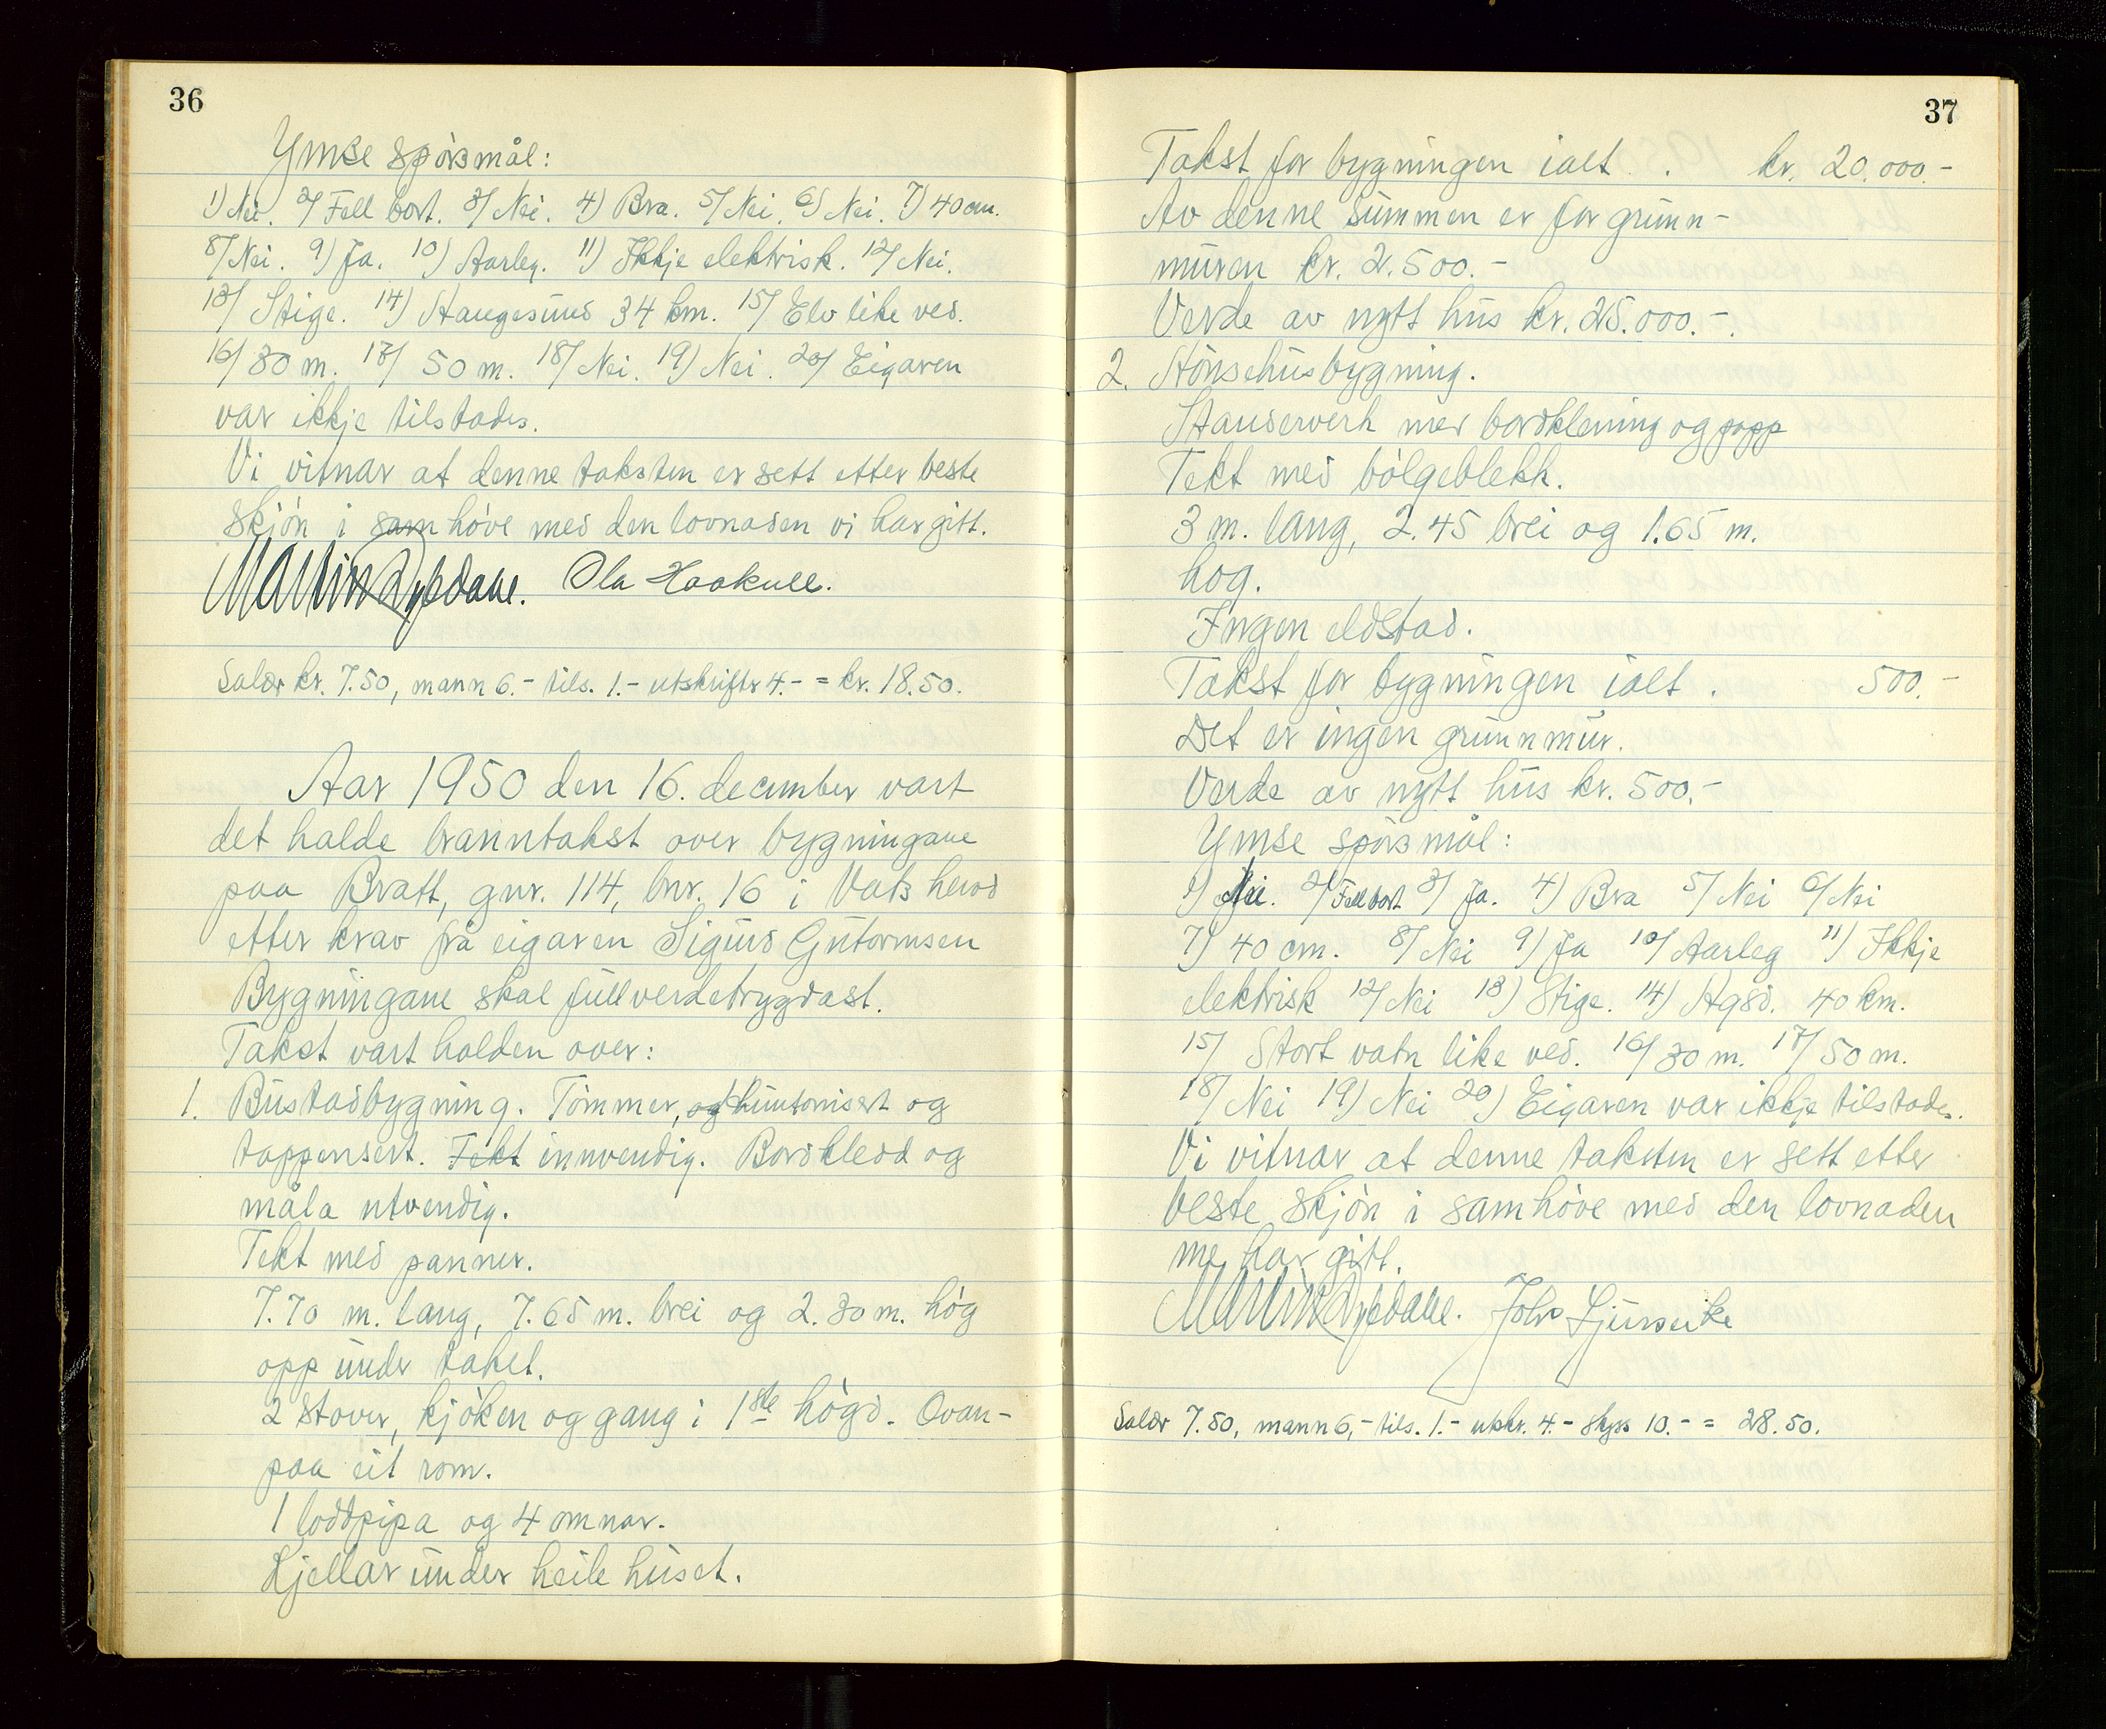 36
Ymse spörsmål:
1) Nei. 2/ Fell bort. 3/ Nei. 4) Bra. 5/ Nei. 6) Nei. 7) 40 cm.
8/ Nei. 9) Ja. 10) Aarleg. 11) Ikkje elektrisk. 12/ Nei.
13/ Stige. 14) Haugesund 34 km. 15/ Elv like ved.
16/ 30 m. 17/ 50 m. 18/ Nei. 19) Nei. 20/ Eigaren
var ikkje tilstades.
Vi vitnar at denne taksten er sett etter beste
skjön i samhöve med den lovnaden vi har gitt.
Martin Dypdahl. Ola Haakull.
Salær kr. 7.50, mann 6.- tils. 1.- utskriftr 4.- = kr. 18.50.
Aar 1950 den 16. december vart
det halde branntakst over bygningane
paa Bratt, gnr. 114, bnr. 16 i Vats herad
etter krav frå eigaren Sigurd Gutormsen
Bygningane skal fullverdetrygdast.
Takst vart halden over:
1. Bustadbygning. Tömmer, og huntonisert og
tappensert. Tekt innvendig. Bordkledd og
måla utvendig.
Tekt med panner.
7.70 m. lang, 7.65 m. brei og 2.30 m. hög
opp under taket.
2 stover, kjöken og gang i 1ste högd. Ovan-
paa eit rom.
1 loddpipa og 4 omnar.
Kjellar under heile huset.
37
Takst for bygningen ialt . kr. 20.000.-
Av denne summen er for grunn-
muren kr. 2.500.-
Verde av nytt hus kr. 25.000.-.
2. Hönsehusbygning.
Stenderverk med bordkledning og papp
Tekt med bölgeblekk.
3 m. lang, 2.45 brei og 1.65 m.
hog.
Ingen eldstad.
Takst for bygningen ialt . 500.-
Det er ingen grunnmur.
Verde av nytt hus kr. 500.-
Ymse spörsmål:
1) Nei. 2/ Fell bort 3/ Ja. 4) Bra 5/ Nei 6/ Nei
7) 40 cm. 8/ Nei 9) Ja 10/ Aarleg 11) Ikkje
elektrisk 12/ Nei 13) Stige. 14) Hgsd. 40 km.
15/ Stort vatn like ved. 16/ 30 m. 17/ 50 m.
18/ Nei 19) Nei 20) Eigaren var ikkje tilstades.
Vi vitnar at denne taksten er sett etter
beste skjön i samhöve med den lovnaden
me har gitt.
Martin Dypdahl. Johs
Salær 7.50, mann 6,- tils. 1.- utskr. 4.- skyss 10.- = 28.50.